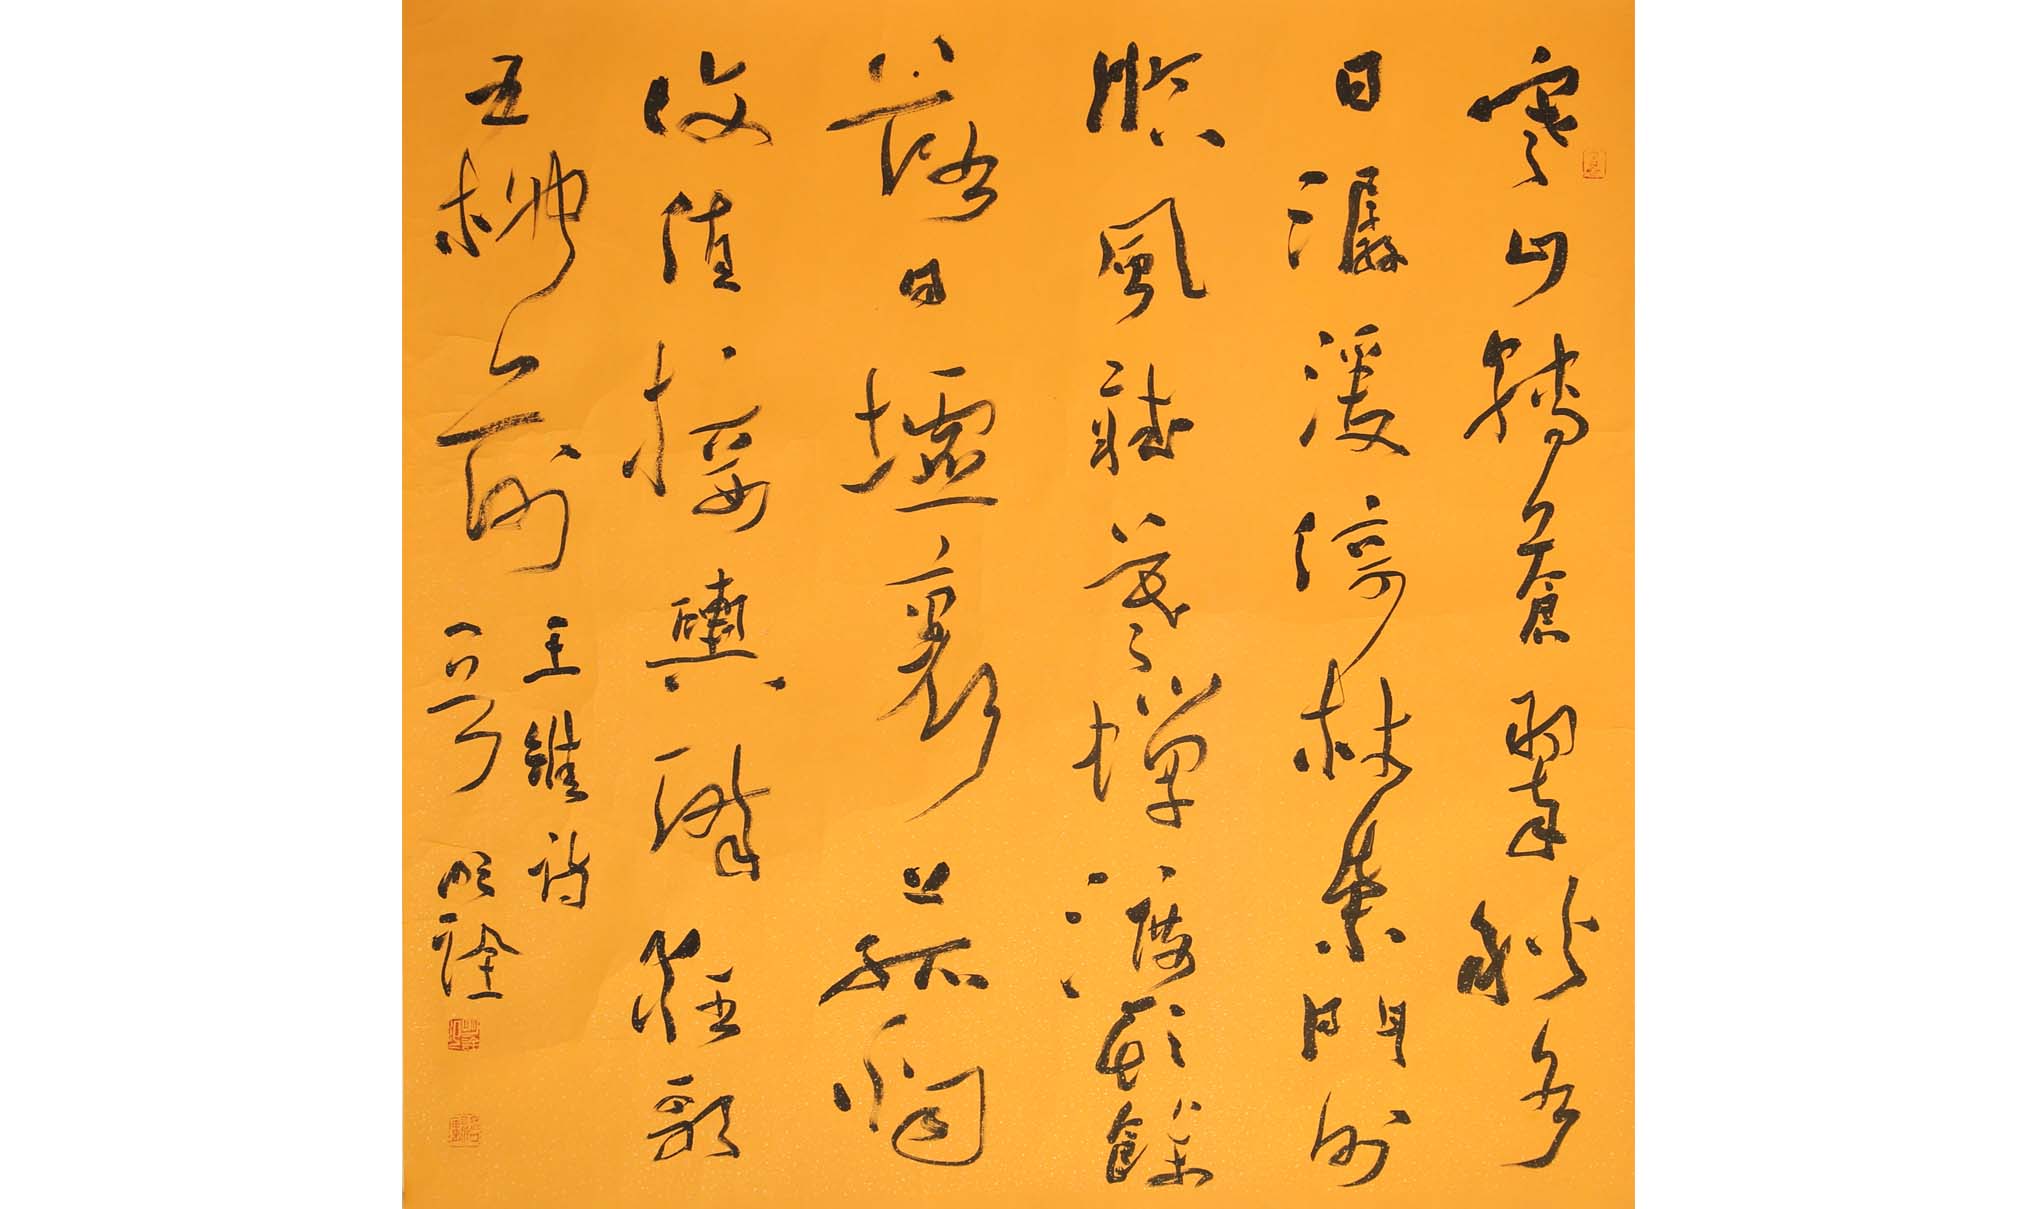 寒山轉蒼翠秋水
日潺湲倚杖柴門外
臨風聽暮蟬渡頭餘
落日墟裏上孤烟
復值接輿醉狂歌
五柳前
王維詩
一首 明詮